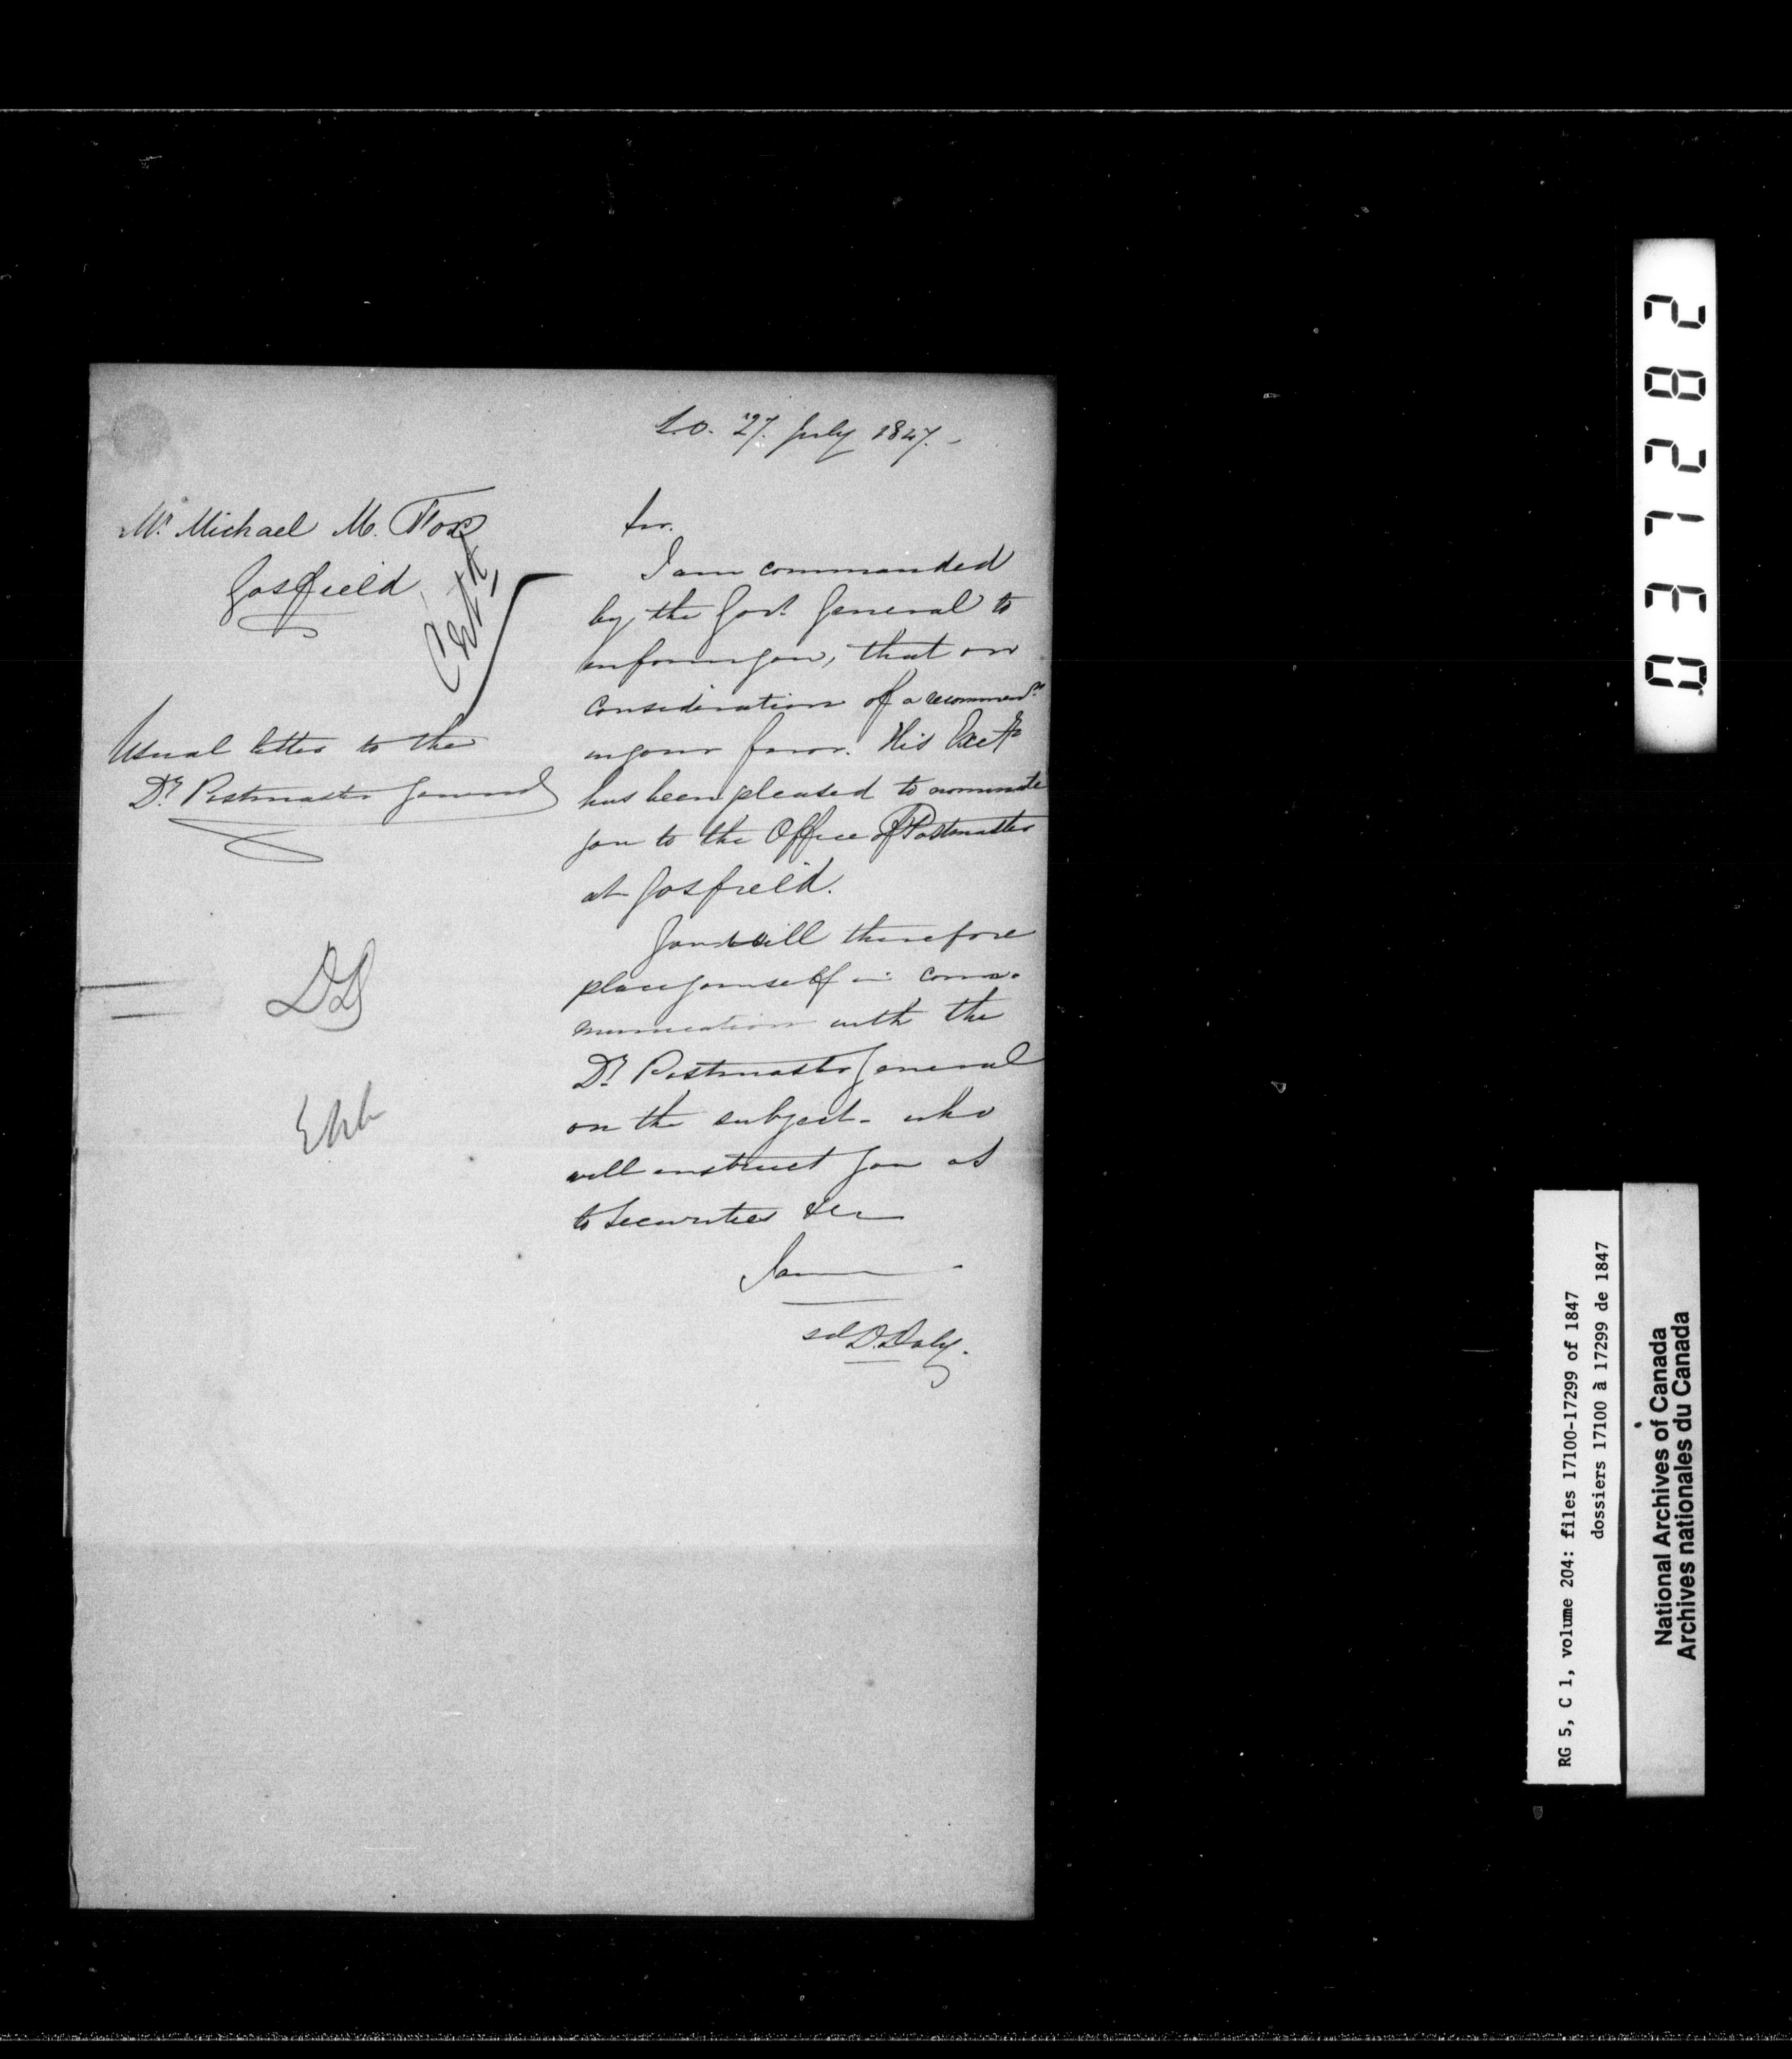 S.O. 27. July 1847.-
Mr. Michael M. Fox
Gosfield
Usual letter to the
Dy. Postmaster General
DD
Sir.
I am commanded
by the Govr. General to
inform you, that on
consideration of a recommendn.
in your favor. His Excely
has been pleased to nominate
you to the Office of Postmaster
at Gosfield.
You will therefore
place yourself in com-
munication with the
Dy. Postmaster General
on the subject - who
will instruct you as
to Securities &c
I am
sd D. Daly.
037282
RG 5, C 1, volume 204: files 17100-17299 of 1847
dossiers 17100 à 17299 de 1847
National Archives of Canada
Archives nationales du Canada